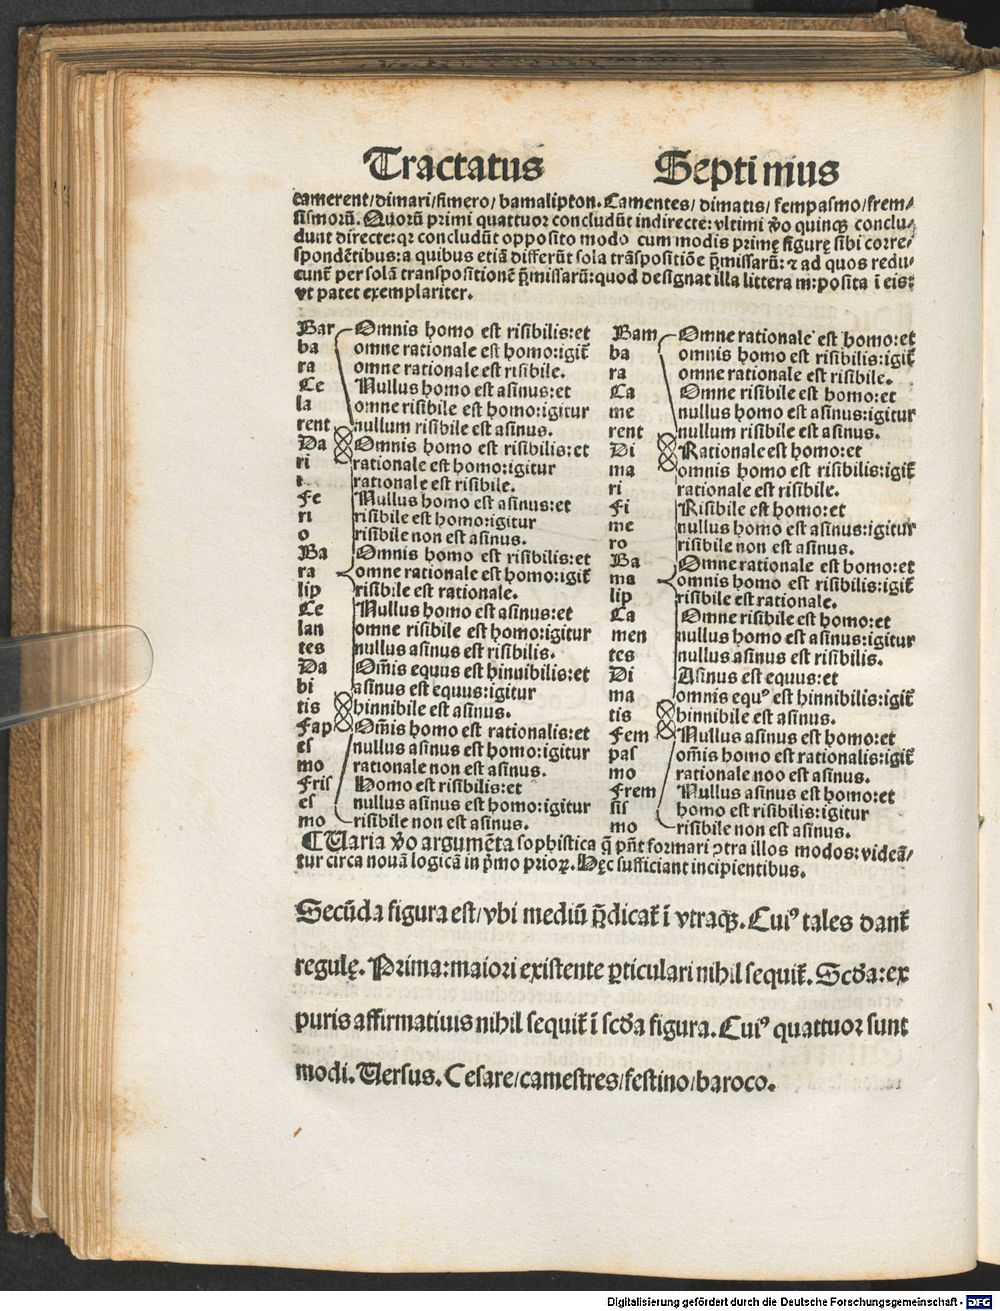 Tractatus Septimus
camerent/dimari/fimero/bamalipton. Camentes/dimatis/fempasmo/frem⸗
sismorū. Quorū primi quattuor concludūt indirecte: vltimi ꝟo quinqꝫ conclu⸗
dunt directe: qꝛ concludūt opposito modo cum modis primę figurę sibi corre⸗
spondētibus: a quibus etiā differūt sola trāspositiōe p̄missarū: ⁊ ad quos redu⸗
cunt̄ per solā transpositionē p̄missarū: quod designat illa littera m: posita ī eis:
vt patet exemplariter.
Bar Omnis homo est risibilis: et
ba omne rationale est homo: igit̄
ra omne rationale est risibile.
Ce Nullus homo est asinus: et
la omne risibile est homo: igitur
rent nullum risibile est asinus.
Da Omnis homo est risibilis: et
ri rationale est homo: igitur
i. rationale est risibile.
Fe Nullus homo est asinus: et
ri risibile est homo: igitur
o risibile non est asinus.
Ba Omnis homo est risibilis: et
ra omne rationale est homo: igit̄
lip risibile est rationale.
Ce Nullus homo est asinus: et
lan omne risibile est homo: igitur
tes nullus asinus est risibilis.
Da Om̄is equus est hinnibilis: et
bi asinus est equus: igitur
tis hinnibile est asinus.
Fap Om̄is homo est rationalis: et
es nullus asinus est homo: igitur
mo rationale non est asinus.
Fris Homo est risibilis: et
es nullus asinus est homo: igitur
mo risibile non est asinus.
Bam Omne rationale est homo: et
ba omnis homo est risibilis: igit̄
ra omne rationale est risibile.
Ca Omne risibile est homo: et
me nullus homo est asinus: igitur
rent nullum risibile est asinus.
Di Rationale est homo: et
ma omnis homo est risibilis: igit̄
ri rationale est risibile.
Fi Risibile est homo: et
me nullus homo est asinus: igitur
ro risibile non est asinus.
Ba Omne rationale est homo: et
ma omnis homo est risibilis: igit̄
lip risibile est rationale.
Ca Omne risibile est homo: et
men nullus homo est asinus: igitur
tes nullus asinus est risibilis.
Di Asinus est equus: et
ma omnis equꝰ est hinnibilis: igit̄
tis hinnibile est asinus.
Fem Nullus asinus est homo: et
pas om̄is homo est rationalis: igit̄
mo rationale noo est asinus.
Frem Nullus asinus est homo: et
sis homo est risibilis: igitur
mo risibile non est asinus.
¶ Uaria ꝟo argumēta sophistica q̄ pn̄t formari ↄtra illos modos: videā⸗
tur circa nouā logicā in p̄mo prioꝝ. Hęc sufficiant incipientibus.
Secūda figura est/vbi mediū p̄dicat̄ ī vtraqꝫ. Cuiꝰ tales dant̄
regulę. Prima: maiori existente ꝑticulari nihil sequit̄. Scd̄a: ex
puris affirmatiuis nihil sequit̄ ī scd̄a figura. Cuiꝰ quattuor sunt
modi. Uersus. Cesare/camestres/festino/baroco.
Digitalisierung gefördert durch die Deutsche Forschungsgemeinschaft - DFG